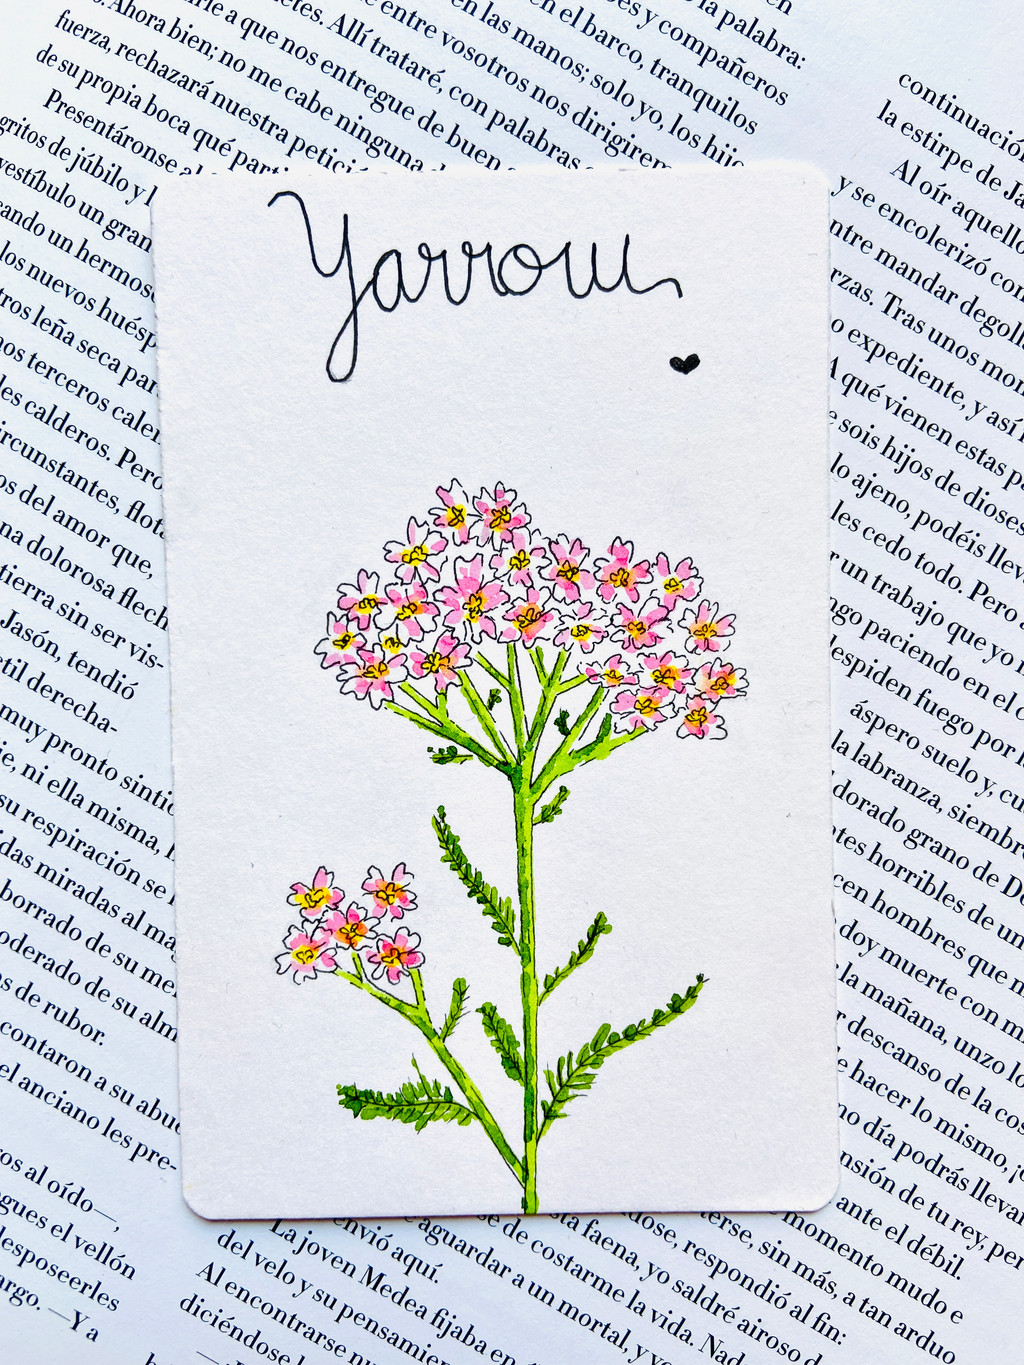 Yarrow
en
la palabra:
es y compañeros
en el barco, tranquilos
en las manos; solo yo, los hijo
entre vosotros nos dirigirem
etes. Allí trataré, con palabras
irle a que nos entregue de buen
Ahora bien; no me cabe ninguna d
fuerza, rechazará nuestra petició
de su propia boca qué parti
Presentáronse al
gritos de júbilo y l
vestíbulo un gran
ando un hermoso
los nuevos huésp
tros leña seca par
nos terceros calen
les calderos. Pero
ircunstantes, flota
os del amor que,
na dolorosa flech
tierra sin ser vis-
Jasón, tendió
til derecha-
muy pronto sintió
ie, ni ella misma, h
su respiración se h
das miradas al mag
borrado de su me
oderado de su alm
s de rubor.
contaron a su abue
el anciano les pre-
ros al oído—,
gues el vellón
desposeerles
argo. —Y a
La joven Medea fijaba e
del velo y su pensamien
Al encontrarse nu
diciéndose
envió aquí.
continuació
la estirpe de Ja
Al oír aquello
y se encolerizó con
ntre mandar degolla
rzas. Tras unos mom
o expediente, y así l
A qué vienen estas pa
e sois hijos de dioses
lo ajeno, podéis lleva
les cedo todo. Pero a
r un trabajo que yo m
ngo paciendo en el c
despiden fuego por l
áspero suelo y, cu
la labranza, siembro
dorado grano de D
tes horribles de un
cen hombres que m
doy muerte con mi
la mañana, unzo lo
r descanso de la cos
e hacer lo mismo, ¡o
no día podrás llevar
nsión de tu rey, per
ante el débil.
momento mudo e
terse, sin más, a tan arduo
dose, respondió al fin:
sta faena, yo saldré airoso d
se de costarme la vida. Nad
e aguardar a un mortal, y vo